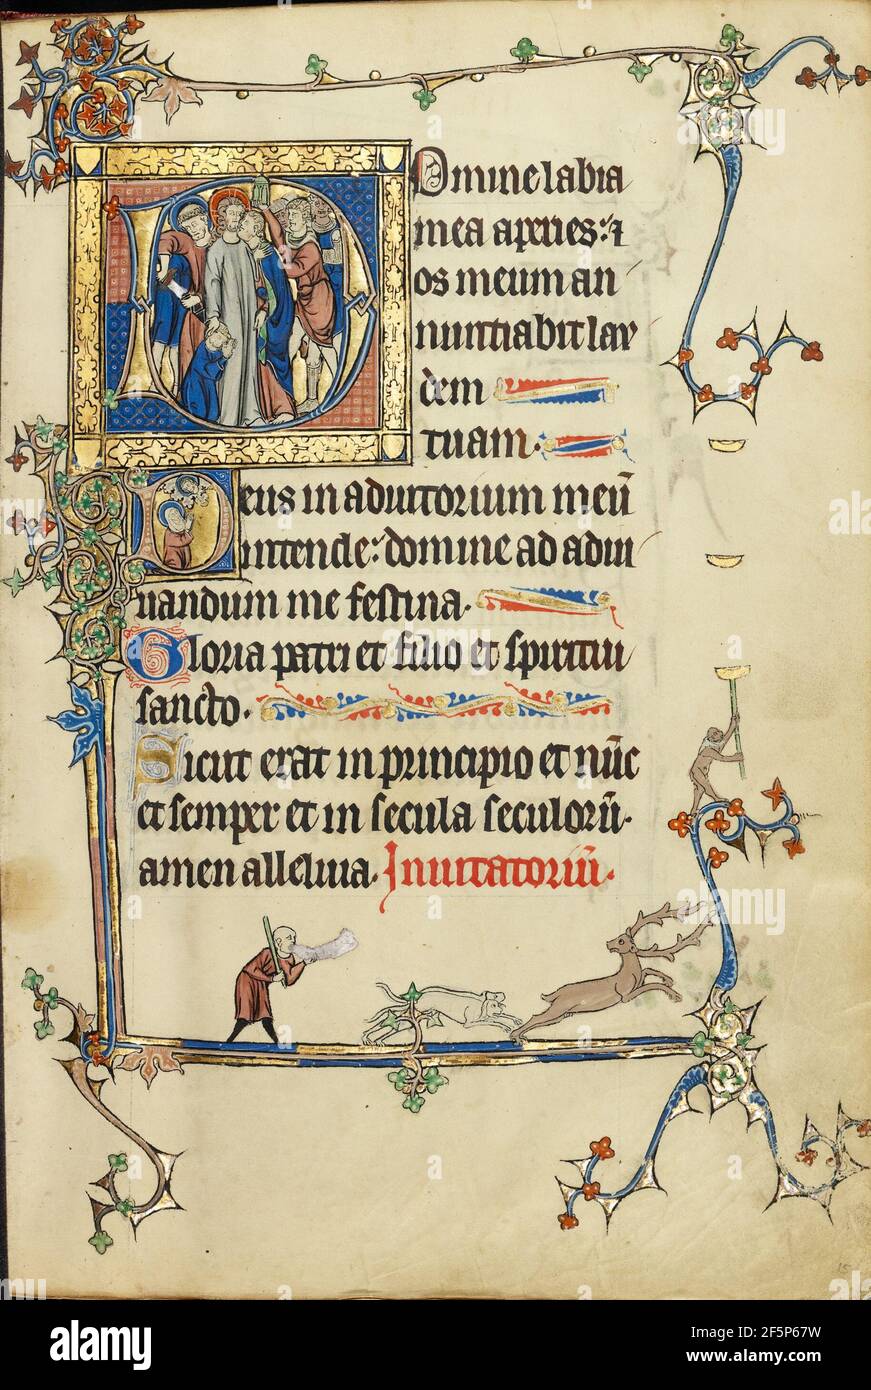 Domine labia
mea aperies: et
os meum an
nuntiabit lau
dem
tuam.
Deus in adiutorium meū
intende: domine ad adiu
uandum me festina.
Gloria patri et filio et spiritui
sancto.
Sicut erat in principio et nūc
et semper et in secula seculorū.
amen alleluia. Inuitatoriū.
alamy
alamy
Image ID: 2F5P67W
www.alamy.com